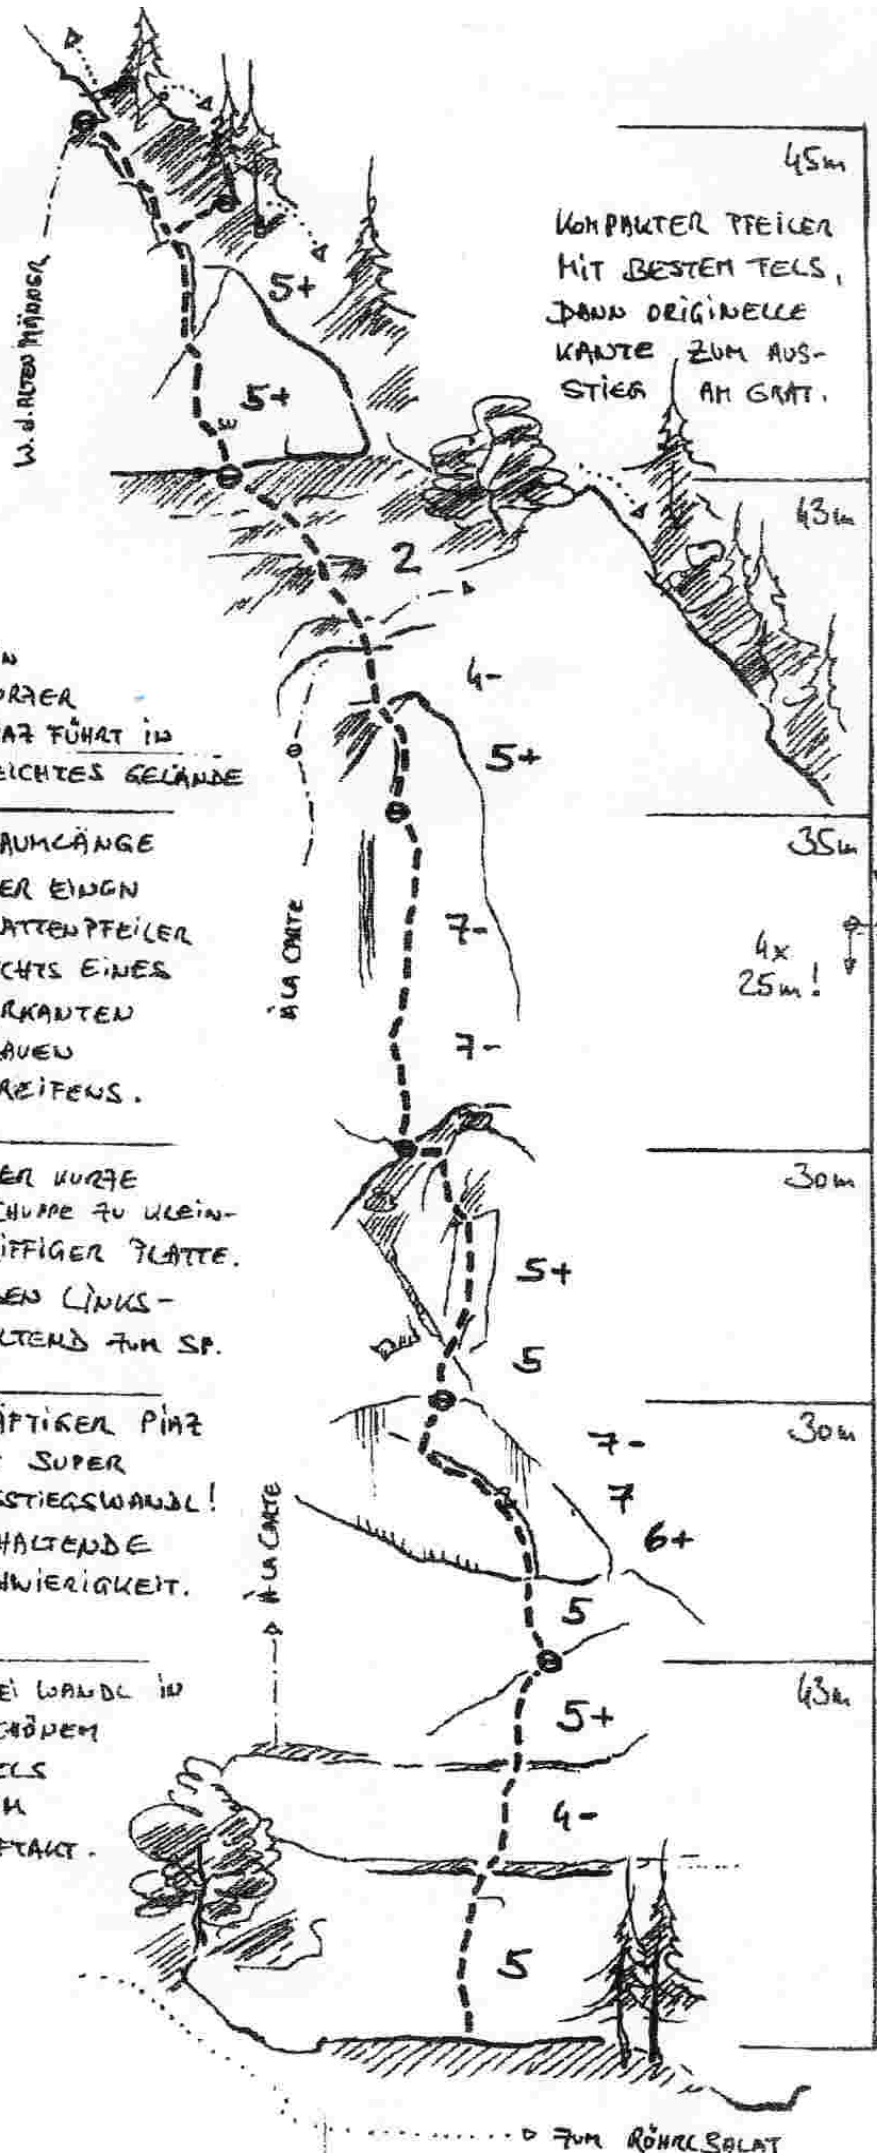 45m
KOMPAKTER PFEILER
MIT BESTEM FELS,
DANN ORIGINELLE
KANTE ZUM AUS-
STIEG AM GRAT.
W. d. ALTEN MÄNNER
5+
5+
SU
43m
2
4-
5+
N
ORZER
AZ FÜHRT IN
EICHTES GELÄNDE
35m
AUMLÄNGE
ER EINEN
ATTENPFEILER
CHTS EINES
RKANTEN
AUEN
REIFENS.
À LA CARTE
7-
7-
4x
25m!
30m
ER KURZE
CHUPPE ZU KLEIN-
IFFIGER PLATTE.
EN LINKS-
LTEND ZUM SP.
5+
5
30m
ÄFTIGER PIAZ
T SUPER
SSTIEGSWANDL!
HALTENDE
HWIERIGKEIT.
7-
7
6+
À LA CARTE
5
43m
EI WANDL IN
CHÖNEM
ELS
M
FTAKT.
5+
4-
5
ZUM RÖHRLSALAT